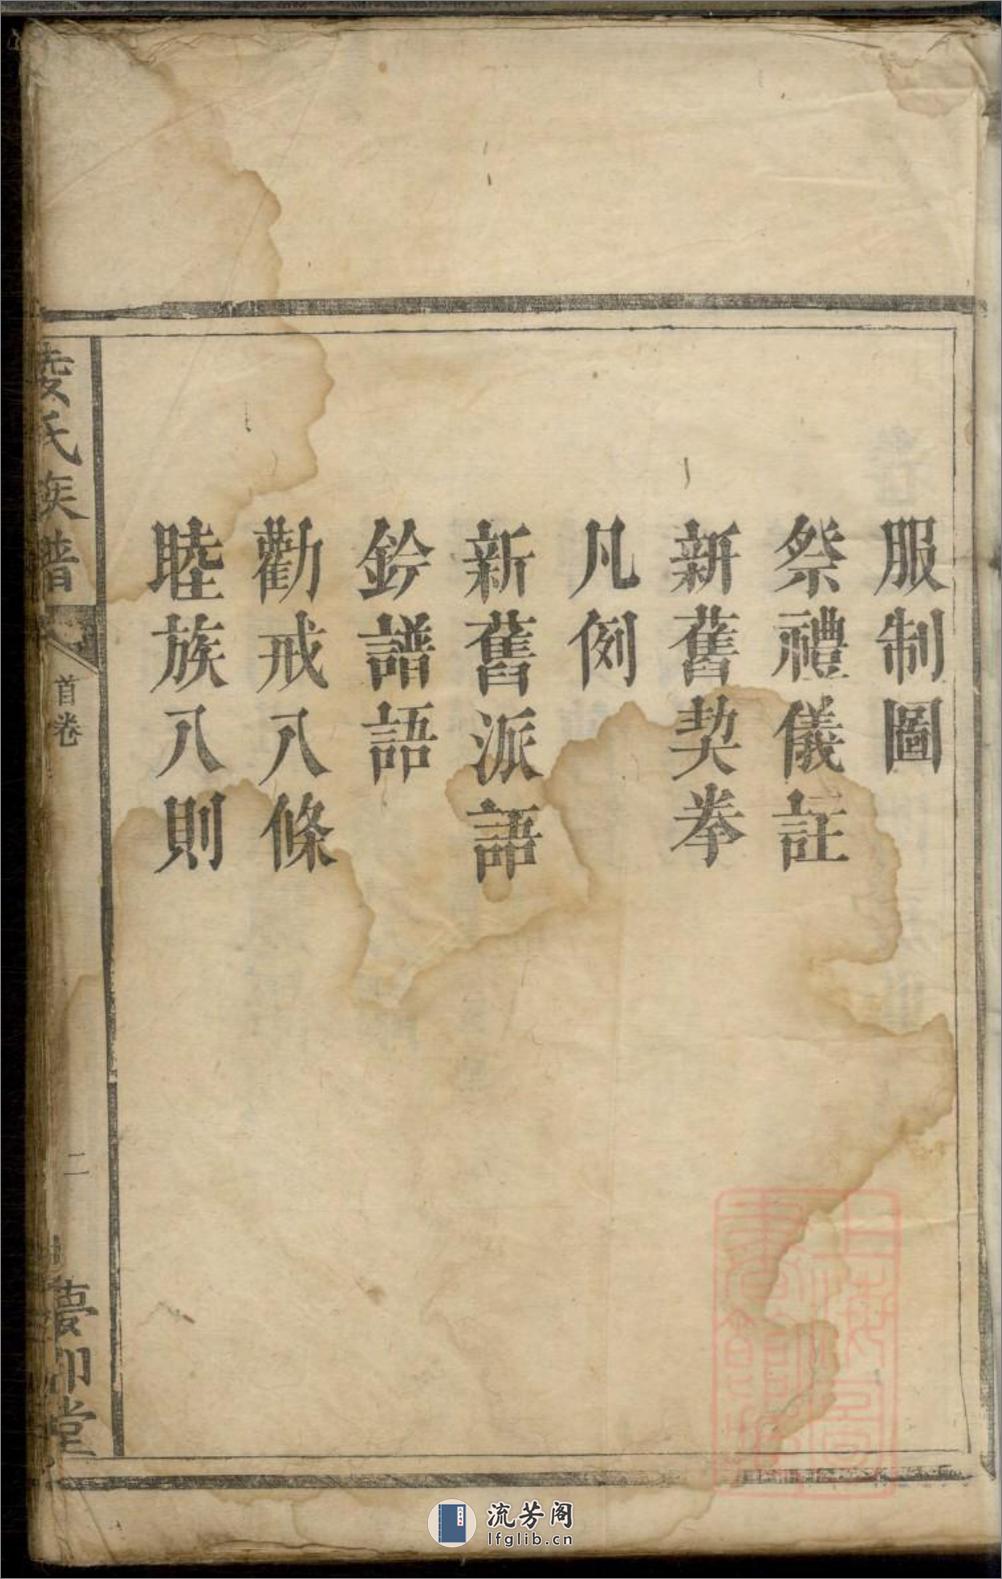 服制圖
祭禮儀註
新舊契拳
凡例
新舊派語
鈐譜語
勸戒八條
睦族八則
氏族譜
首卷
二
夢卵堂
流芳阁
lfglib.cn